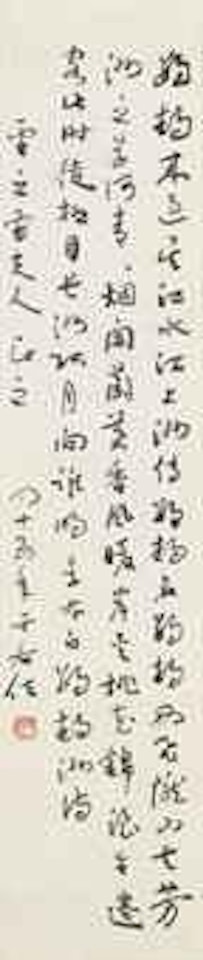 鸚鵡來過吳江水江上洲傳鸚鵡名鸚鵡西飛隴山去芳
洲之樹何青々煙開蘭葉香風暖岸夾桃花錦浪生遷
客此時徒極目長洲孤月向誰明 李太白鸚鵡洲詩
夫人正之 四十五年于右任